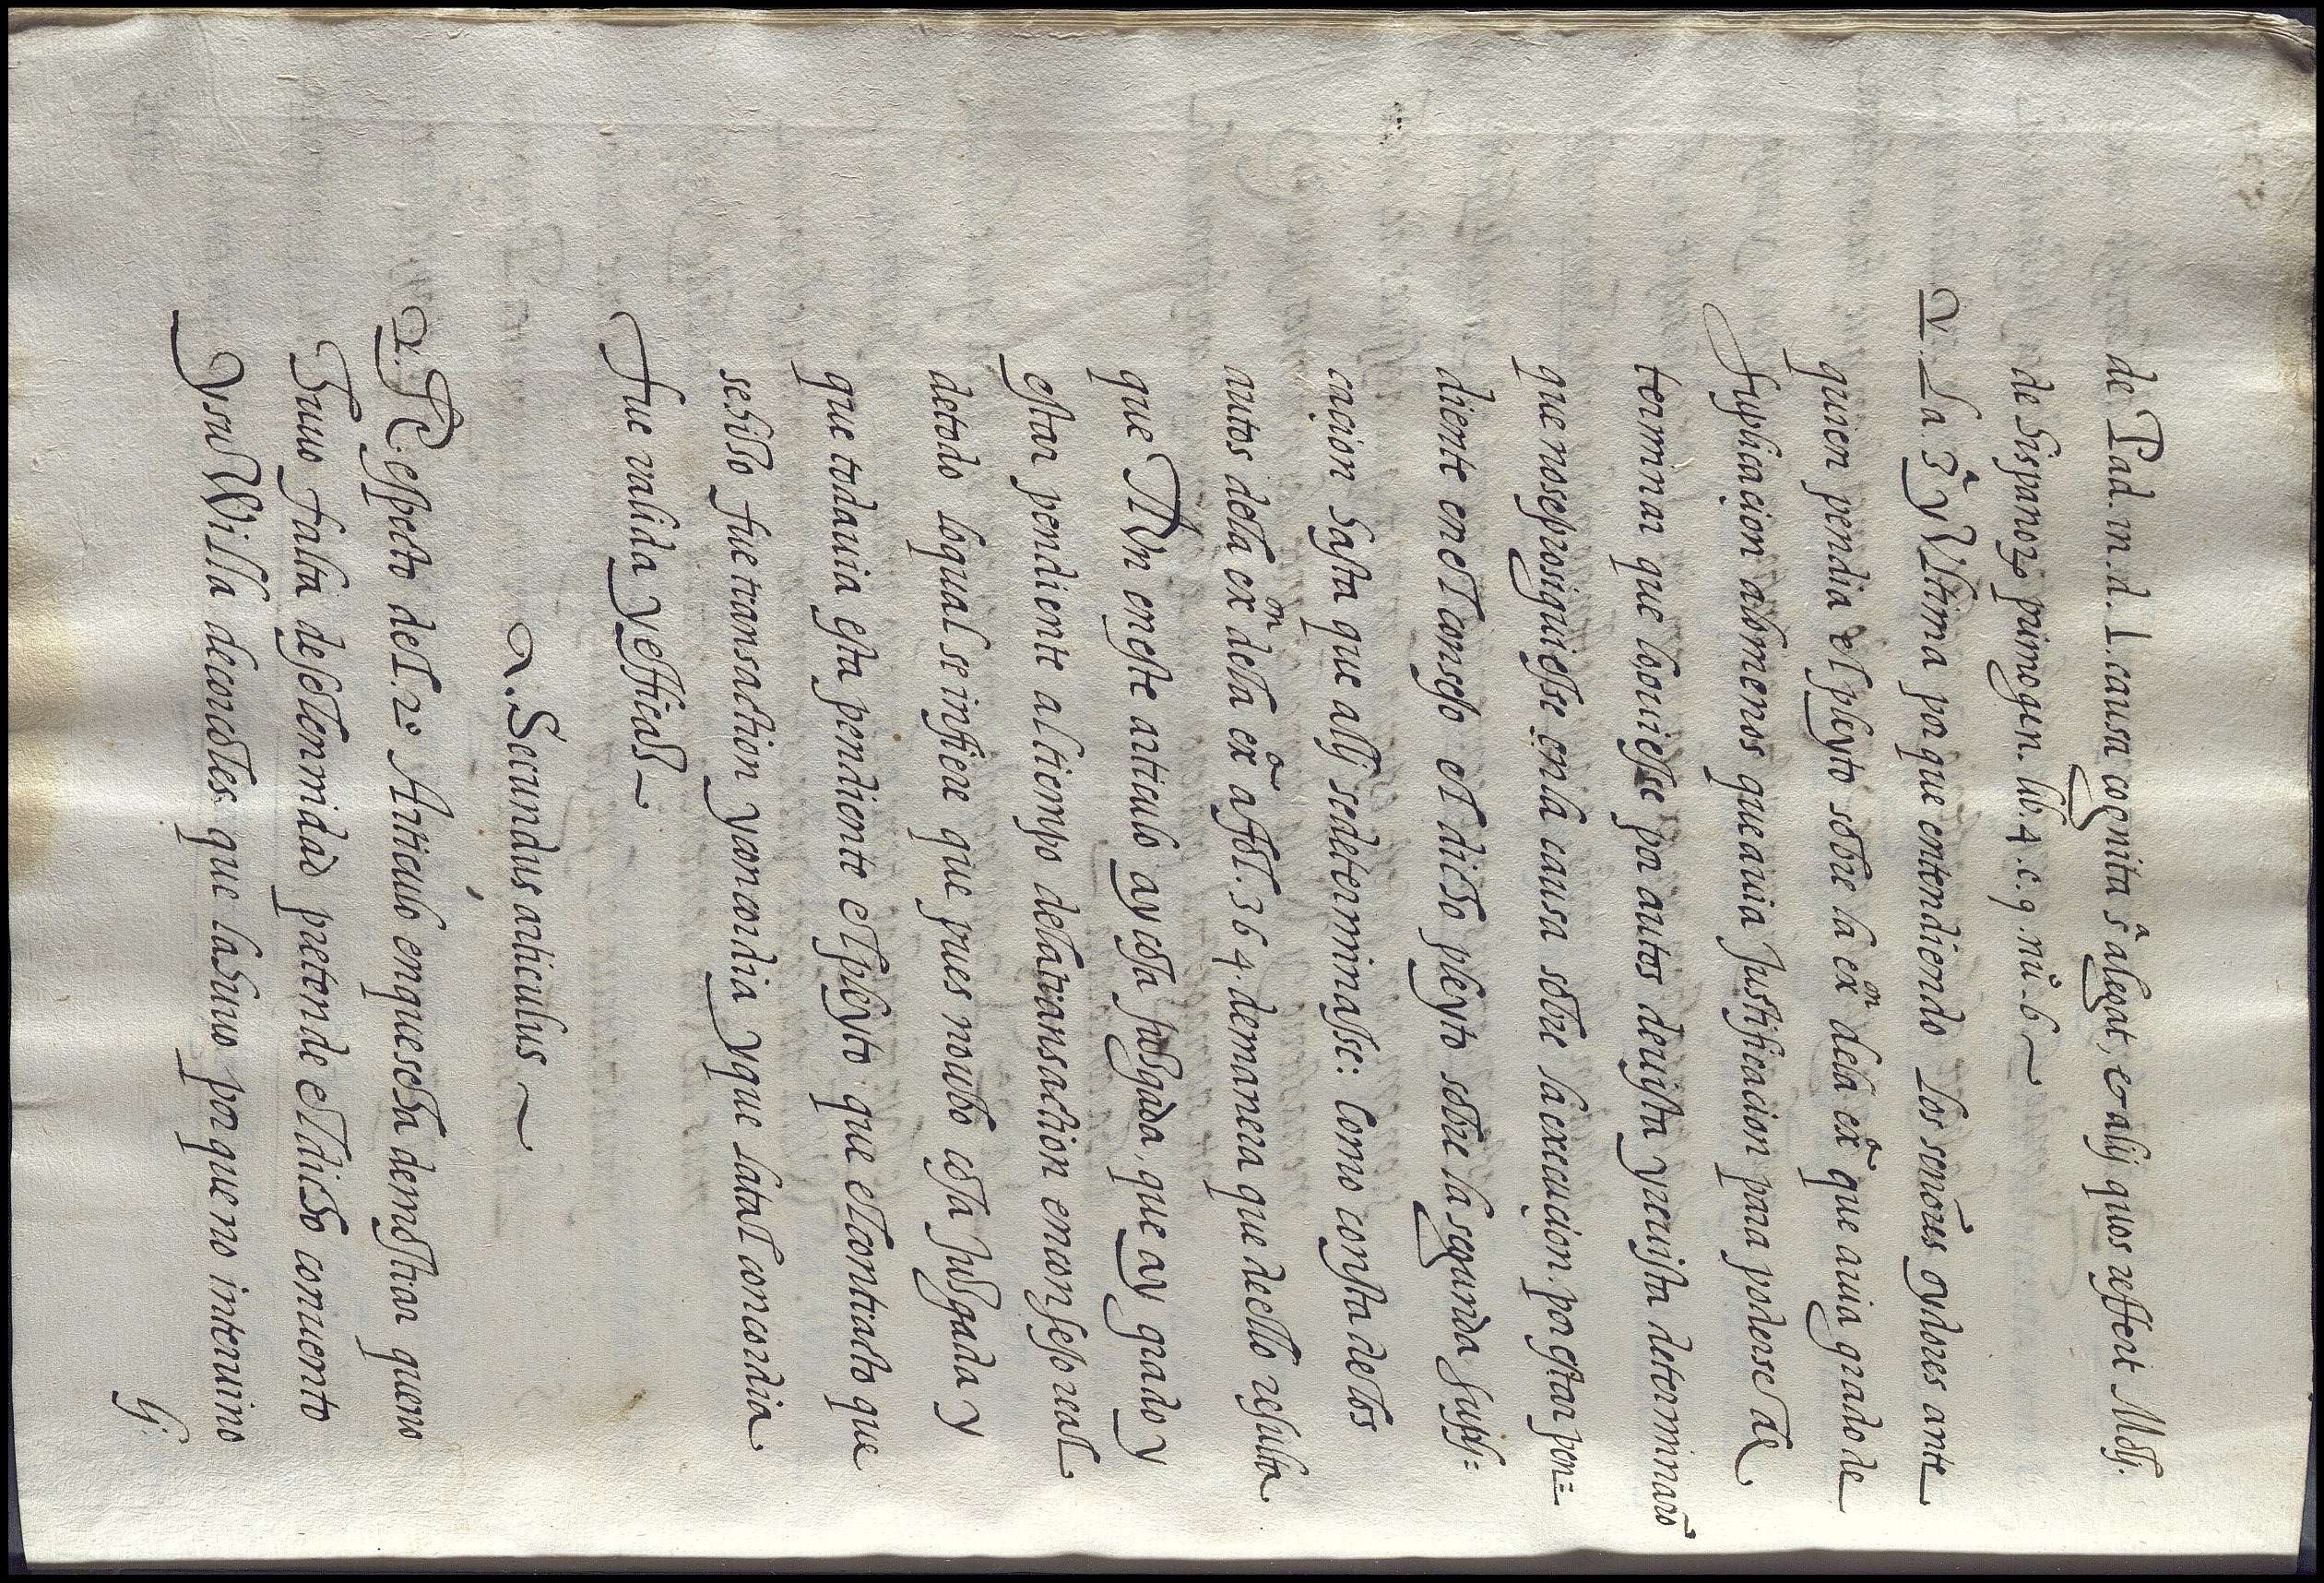 de Tad. in. d. l. causa cognita s̃ alegat, et alij quos reffert Moli.
de hispanoꝝ primogen. lib. 4. c. 9. nũ. 6
La. 3ª y Ultima por que entendiendo los senõrs oydores ante
quien pendia el pleyto sobre la exᵒⁿ dela exª que auia grado de
suplicaçion alomenos que auia Justificacion para poderse la de
terminar que lo ouiesse por autos deuista y reuista determinarõ
que noseprosiguiesse enla causa sobre la execuçion. por estar pen=
diente enel consejo el dicho pleyto sobre la segunda supli=
caçion hasta que allj sedeterminasse: Como consta delos
autos della exᵒⁿ della exª affol. 364. demanera que dello resulta
que Aun eneste articulo ay cosa Juzgada. que ay grado y
estar pendiente al tiempo dela transaction enconsejo real
detodo loqual se infiere que pues noubo cosa Juzgada y
que todauia esta pendiente el pleyto que el contracto que
sehizo fue transaction yconcordia yque latal concordia
fue valida y efficaz
Secundus articulus
Respecto del. 2º Articulo enqueseha demostrar queno
huuo falta de solennidad pretende el dicho conuento
ysu Villa decordoles que lahuuo por que no interuino
li.